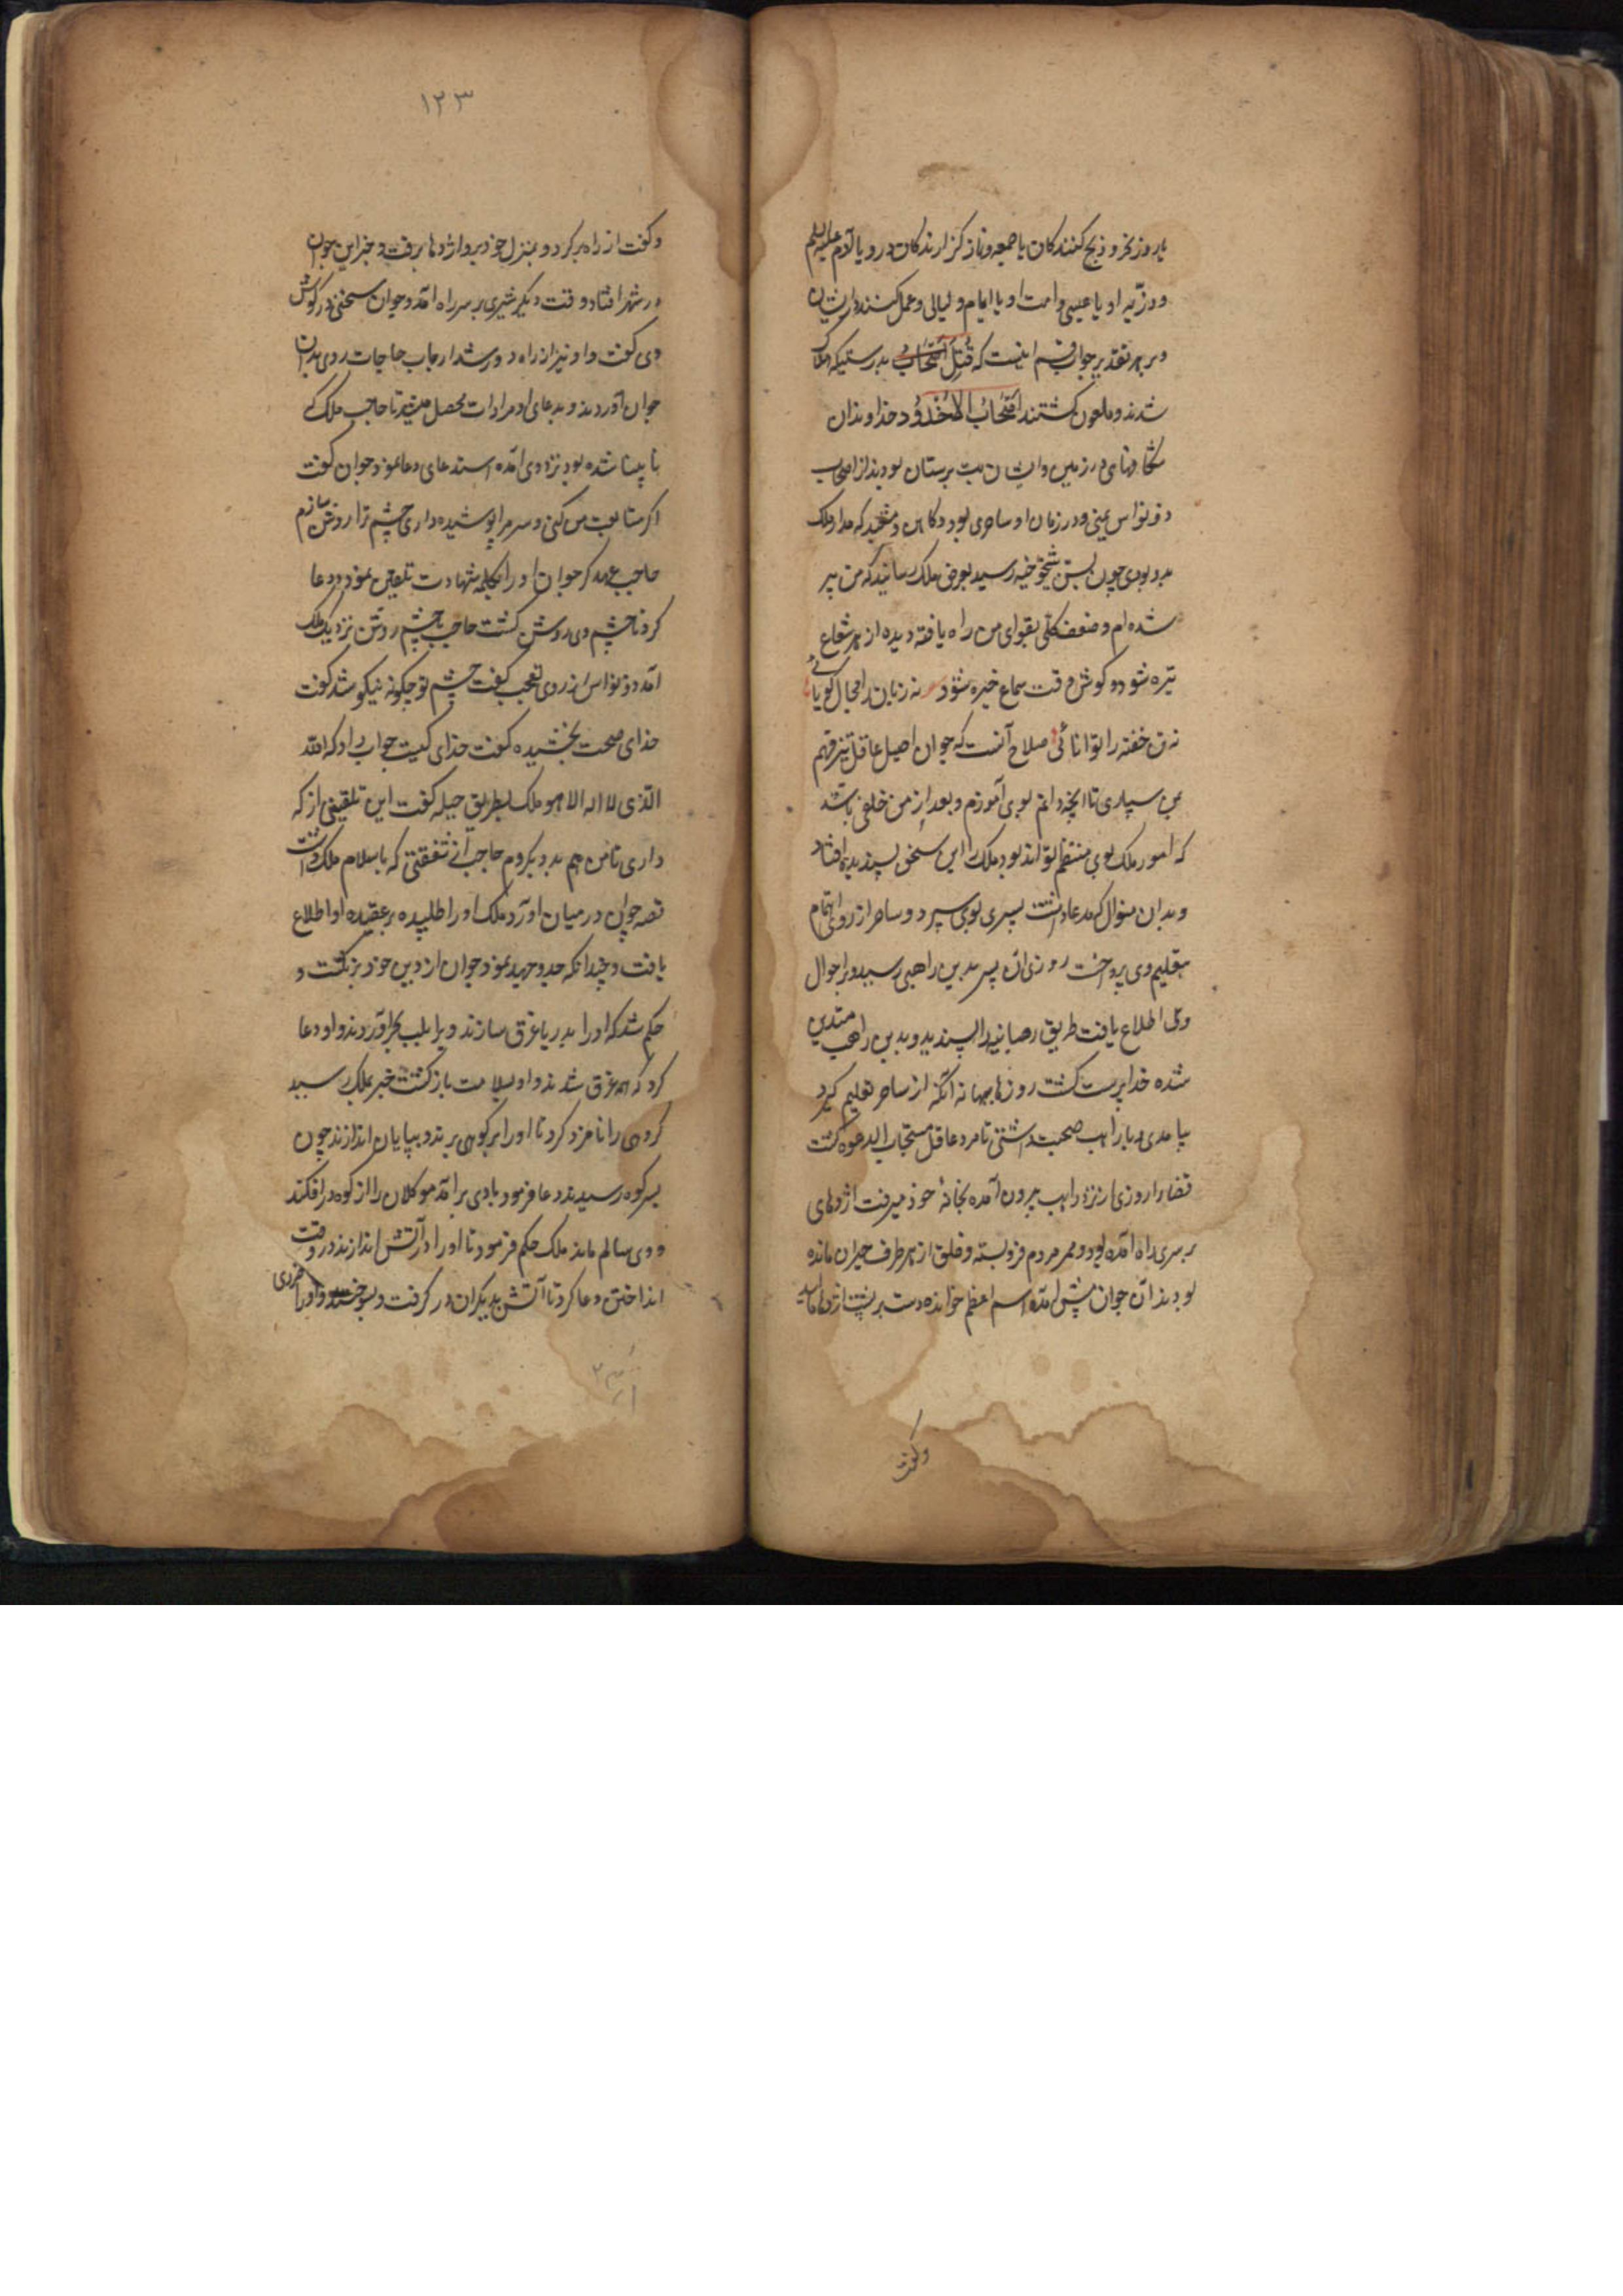 یا روز نحر و ذبح کنندکان یا جمعه و نماز کزارندکان درو یا آدم علیه السلم
و ذریه او یا عیسی و امت او یا ایام و لیالی و عمل کنندکان درایشان
و بر هر تقدیر جواب قسم اینست که قُتِلَ اَصْحَابُ بدرستیکه هلاک
شدند و ملعون کشتند اَصْحَابُ الاُخْدُوْد خداوندان
شکافهای در زمین و ایشان بت پرستان بودند از اصحاب
ذونواس یمنی و در زمان او ساحری بود و کاهن و مشعبد که مدار ملک
بدو بودی چون بسن شیخوخیه رسید بعرض ملک رسانید که من پیر
شده ام و ضعف کلی بقوای من راه یافته دیده از هر شعاع
تیره شود و کوش وقت سماع خیره شود نه زبان را مجال کویائی
نه تن خفته را توانائی صلاح آنست که جوان اصیل عاقل تیز فهم
بمن سپاری تا آنچه دانم بوی آموزم و بعد از من خلفی باشد
که امور ملک بوی منتظم تواند بود ملک را این سخن پسندیده افتاد
و بدان منوال که مدعا داشت پسری بوی سپرد و ساحر از روی اهتمام
بتعلیم وی پرداخت روزی آن پسر بدین راهبی رسید و بر احوال
وی اطلاع یافت طریق رهبانیه را پسندید و بدین راهب متدین
شده خداپرست کشت روزها ببهانه آنکه از ساحر تعلیم کیرد
بیامدی و با راهب صحبت داشتی تا مرد عاقل مستجاب الدعوه کشت
قضا را روزی از نزد راهب بیرون آمده بخانهٔ خود میرفت اژدهای
بر سر راه آمده بود و ممر مردم فرو بسته و خلق از هر طرف حیران مانده
بودند آن جوان پیش آمده اسم اعظم خوانده دست بر پشت اژدها مالید
وکفت
۱۲۳
و کفت از راه بر کرد و بمنزل خود برو اژدها برفت و خبر این جوان
در شهر افتاد وقت دیکر شیری بر سر راه آمد و جوان سخنی در کوش
وی کفت و او نیز از راه دور شد ارباب حاجات روی بدان
جوان آوردند و بدعای او مرادات محصل میشد تا حاجب ملک که
نابینا شده بود نزد وی آمده استدعای دعا نمود جوان کفت
اکر متابعت من کنی و سر مرا پوشیده داری چشم ترا روشن سازم
حاجب عهد کرد جوان او را بکلمه شهادت تلقین نمود و دعا
کرد تا چشم وی روشن کشت حاجب با چشم روشن نزدیک ملک
آمد ذونواس از روی تعجب کفت چشم تو چکونه نیکو شد کفت
خدای صحت بخشیده کفت خدای کیست جواب داد که الله
الذی لا اله الا هو ملک بطریق حیله کفت این تلقین از که
داری تا من هم بدو بکروم حاجب از شفقتی که باسلام ملک داشت
قصه جوان در میان آورد ملک او را طلبیده بر عقیده او اطلاع
یافت و چندانکه جد و جهد نمود جوان از دین خود برنکشت و
حکم شد که او را بدریا غرق سازند ویرا بلب بحر آوردند و او دعا
کرد که همه غرق شدند و او بسلامت باز کشت خبر بملک رسید
کروهی را نامزد کرد تا او را بر کوهی برند و بپایان اندازند چون
بسر کوه رسیدند دعا فرمود بادی برآمد موکلان را از کوه درافکند
و وی سالم ماند ملک حکم فرمود تا او را در آتش اندازند در وقت
انداختن دعا کرد تا آتش بدیکران در کرفت و بسوختند و او را ضرری